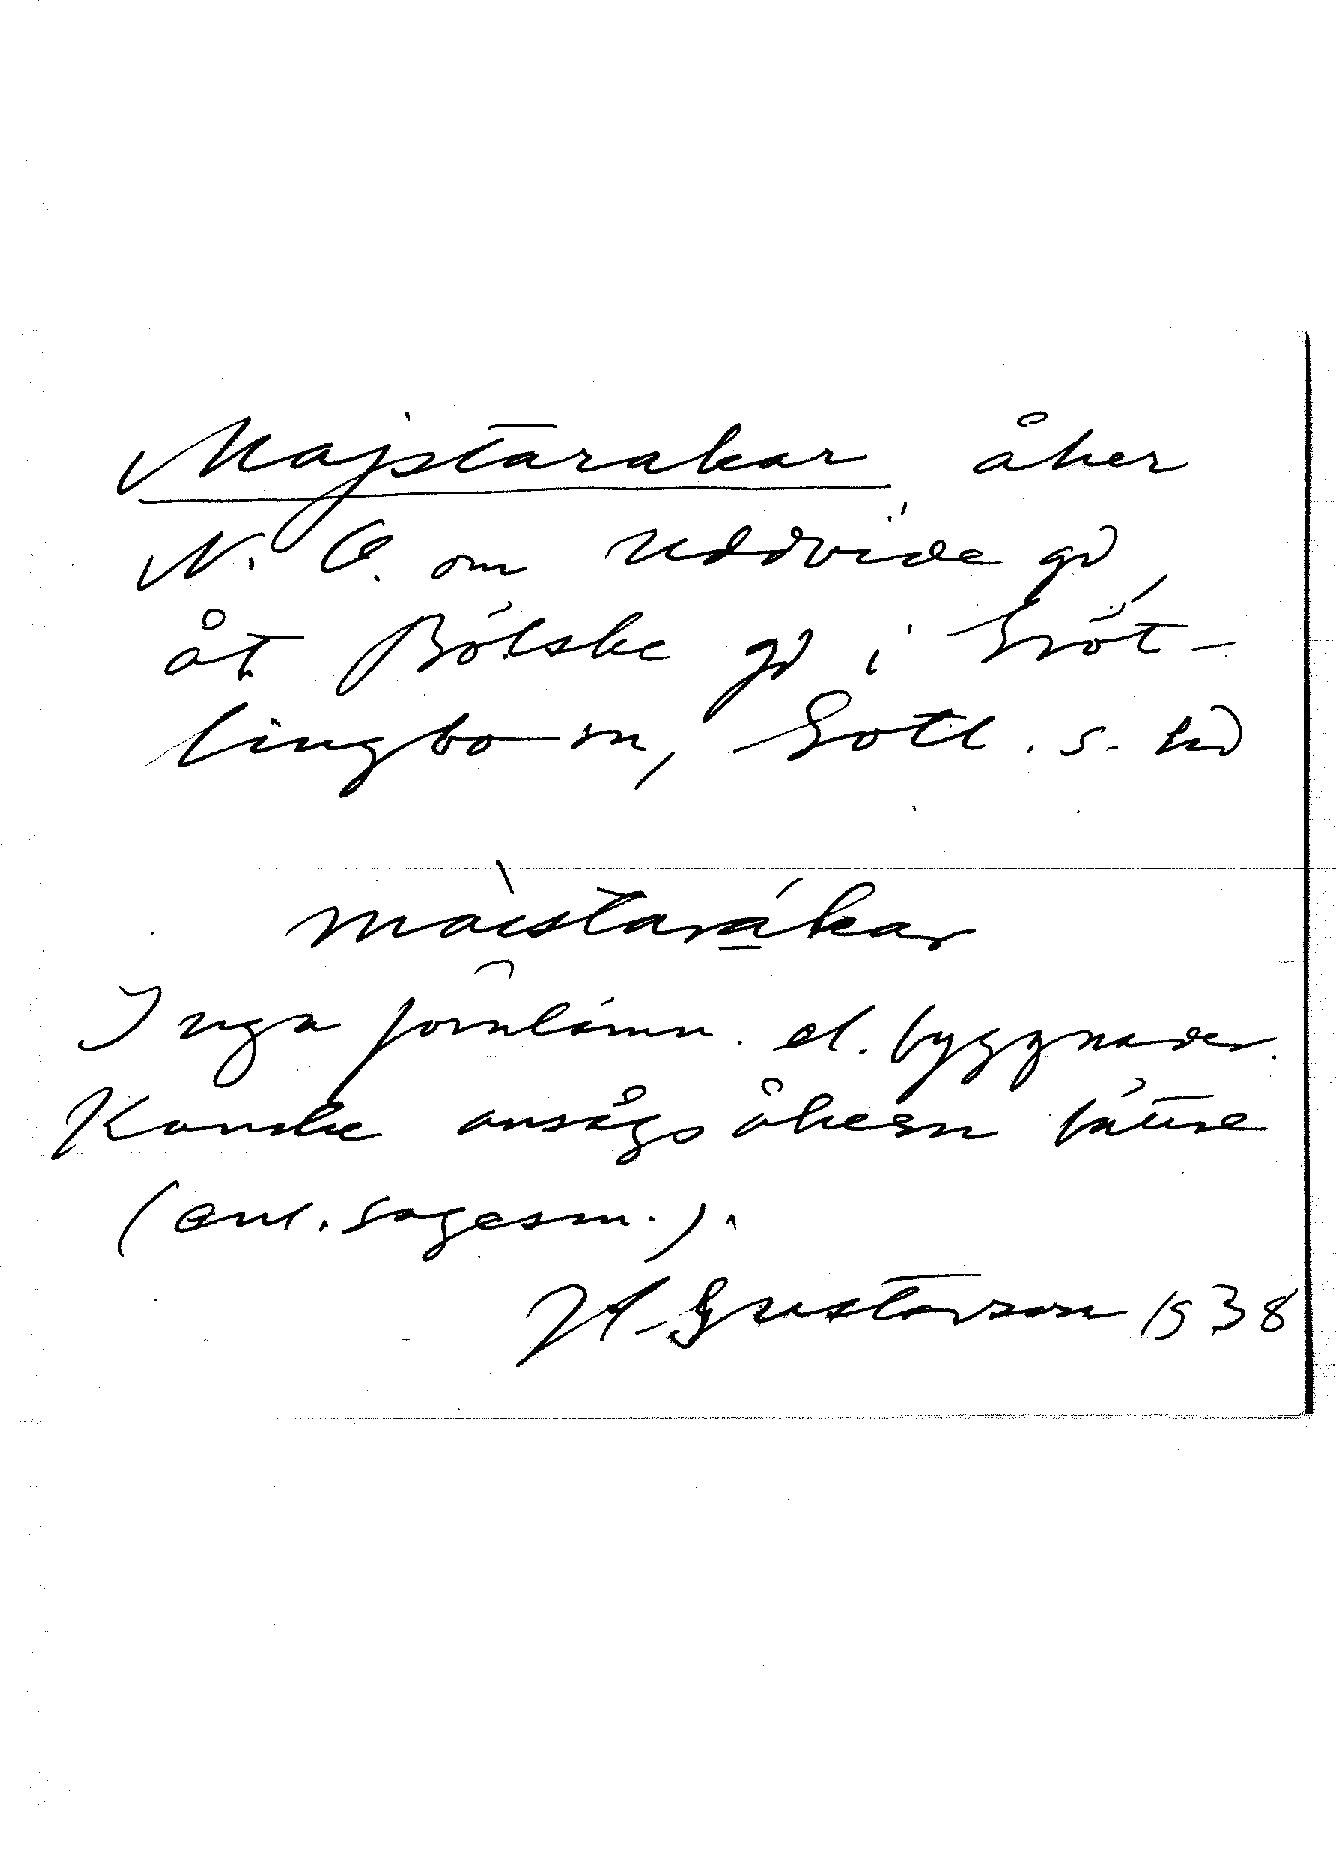 Majstarakar åker
N. O. om Uddvide gd,
åt Bölske gd i Gröt-
lingbo sn, Gotl. s. hd
mòistarákar
Inga fornlämn. el. byggnader.
Kanske ansågs åkern bättre
(enl. sagesm.).
H. Gustavson 1938